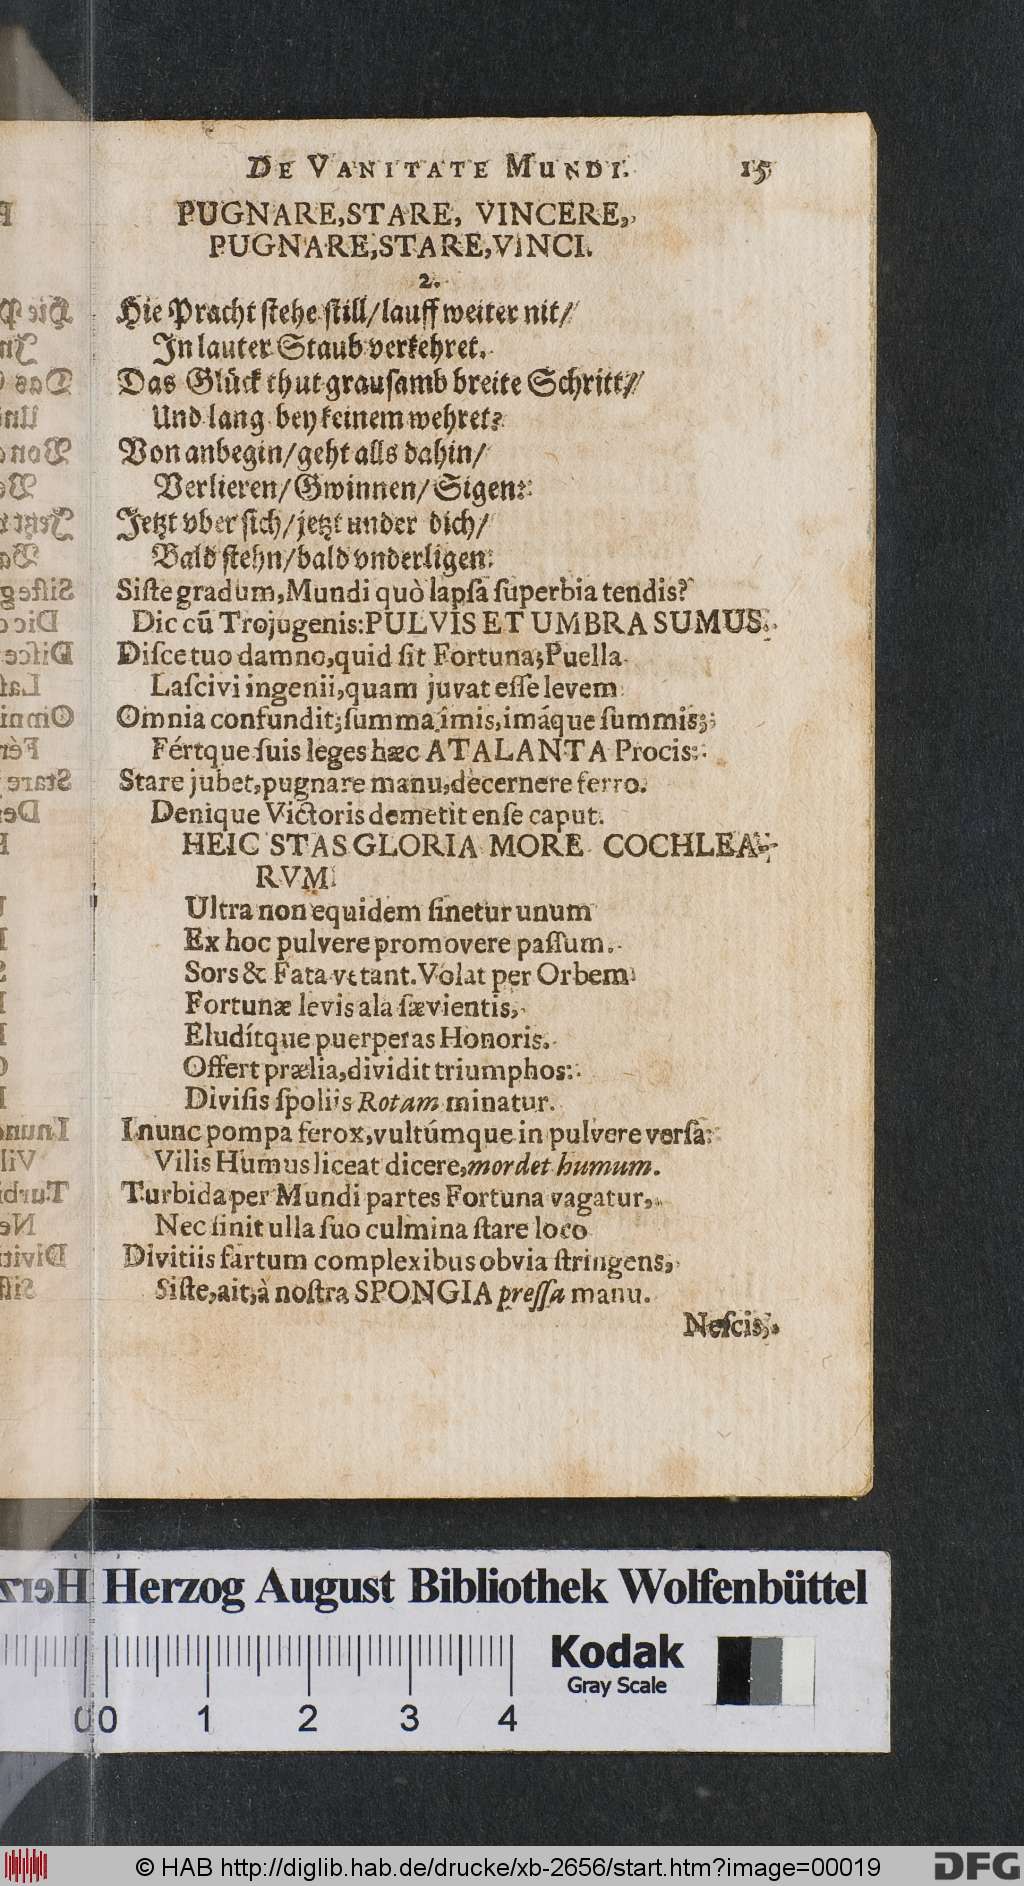 DE VANITATE MUNDI. 15
PUGNARE, STARE, VINCERE,
PUGNARE, STARE, VINCI.
2.
Hie Pracht stehe still/ lauff weiter nit/
In lauter Staub verkehret.
Das Glück thut grausamb breite Schritt/
Und lang bey keinem wehret:
Von anbegin/ geht alls dahin/
Verlieren/ Gwinnen/ Sigen:
Jetzt vber sich/ jetzt under dich/
Bald stehn/ bald vnderligen.
Siſte gradum, Mundi quò lapſa ſuperbia tendis?
Dic cū Trojugenis: PULVIS ET UMBRA SUMUS.
Diſce tuo damno, quid ſit Fortuna; Puella
Laſcivi ingenii, quam juvat eſſe levem
Omnia confundit; ſumma imis, imáque ſummis;
Fértque ſuis leges hæc ATALANTA Procis:
Stare jubet, pugnare manu, decernere ferro.
Denique Victoris demetit enſe caput.
HEIC STAS GLORIA MORE COCHLEA-
RVM
Ultra non equidem ſinetur unum
Ex hoc pulvere promovere paſſum.
Sors & Fata vetant. Volat per Orbem
Fortunæ levis ala ſævientis,
Eludítque puerperas Honoris.
Offert prælia, dividit triumphos:
Diviſis ſpoliis Rotam minatur.
I nunc pompa ferox, vultúmque in pulvere verſa:
Vilis Humus liceat dicere, mordet humum.
Turbida per Mundi partes Fortuna vagatur,
Nec ſinit ulla ſuo culmina ſtare loco
Divitiis fartum complexibus obvia ſtringens,
Siſte, ait, à noſtra SPONGIA preſſa manu.
Neſcis,
Herzog August Bibliothek Wolfenbüttel
Kodak
Gray Scale
0 1 2 3 4
© HAB http://diglib.hab.de/drucke/xb-2656/start.htm?image=00019
DFG